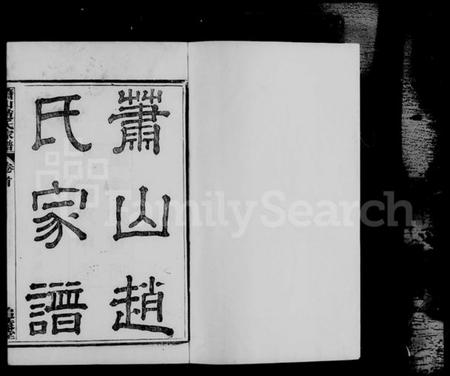 蕭山趙
氏家譜
卷首
FamilySearch